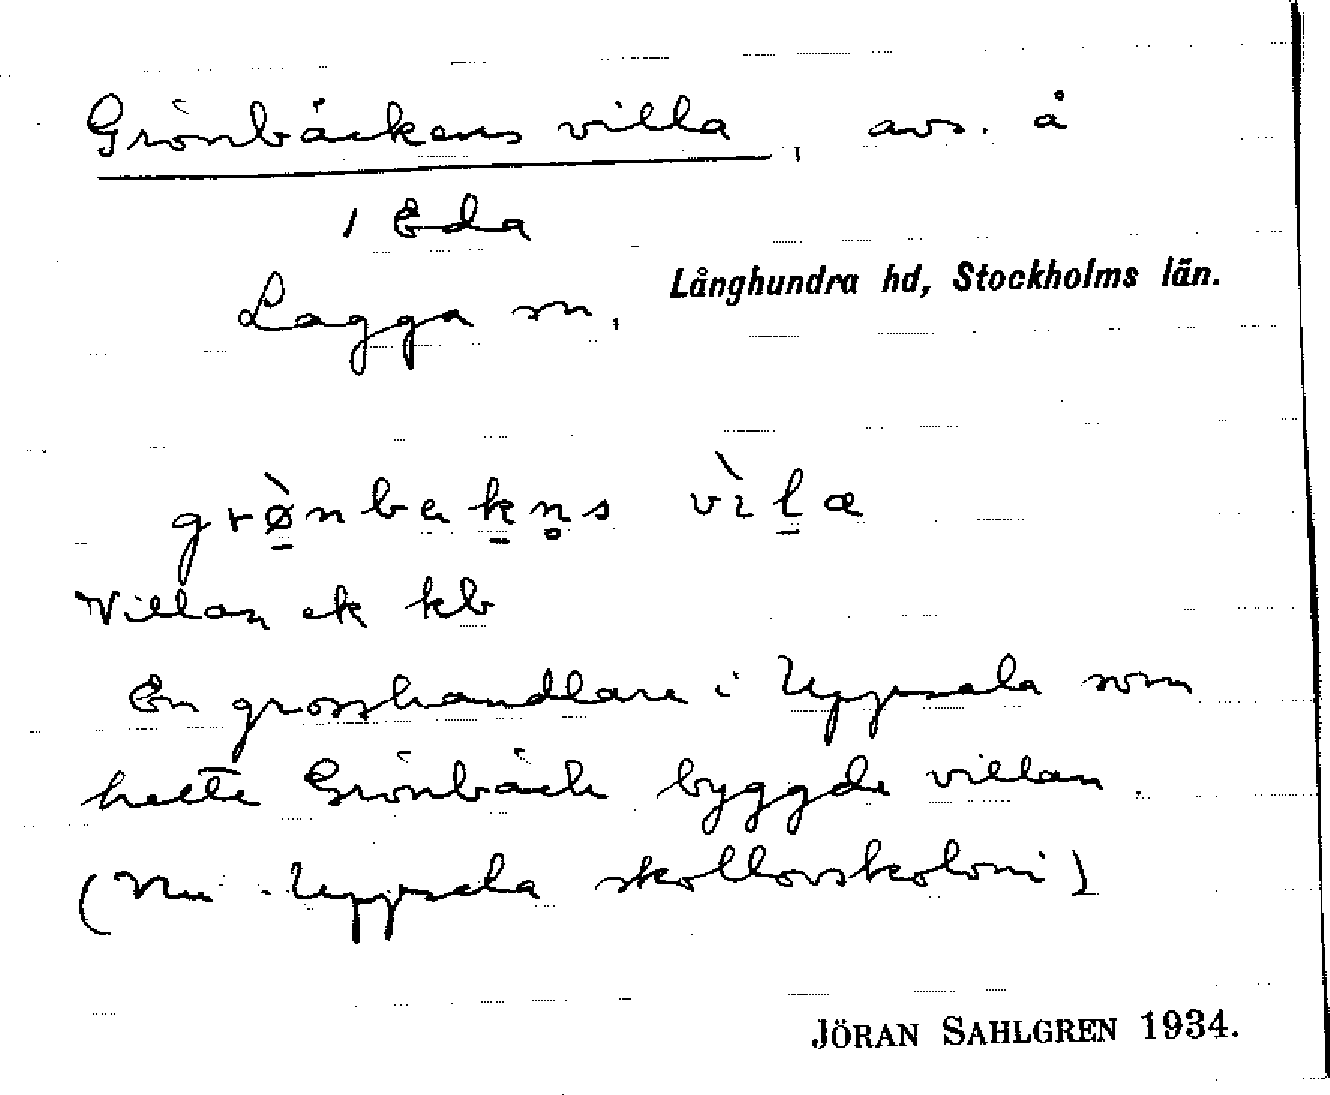 Grönbäckens villa, avs. å
1 Eda
Lagga sn, Långhundra hd, Stockholms län.
grø̀nbakn̥s vìla
Villan ek kb
En grosshandlare i Uppsala som
hette Grönbäck byggde villan.
(Nu Uppsala skollovskoloni)
JÖRAN SAHLGREN 1934.